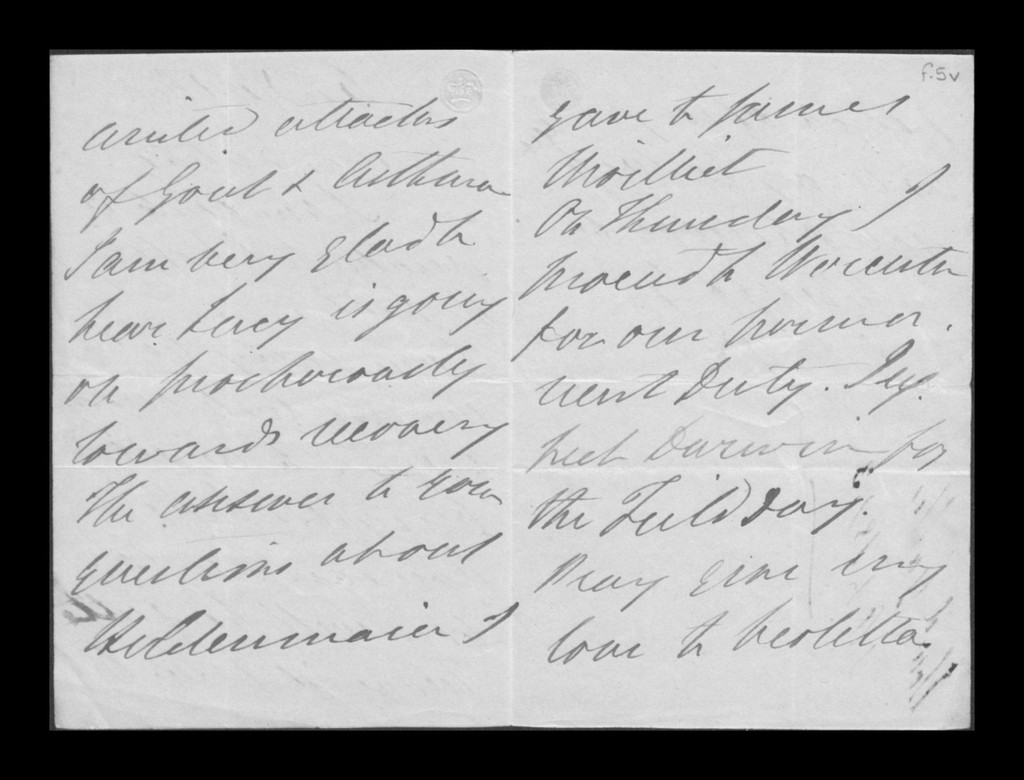 united attacks
of Gout & Asthma
I am very glad to
hear Lucy is going
on prosperously
towards recovery
The answer to your
questions about
Heldenmaier I
f.5v
gave to James
Moilliet
On Thursday I
proceed to Worcester
for our permanent
nent Duty. I
Darwin for
the Feild Day.
Pray give my
love to Violetta